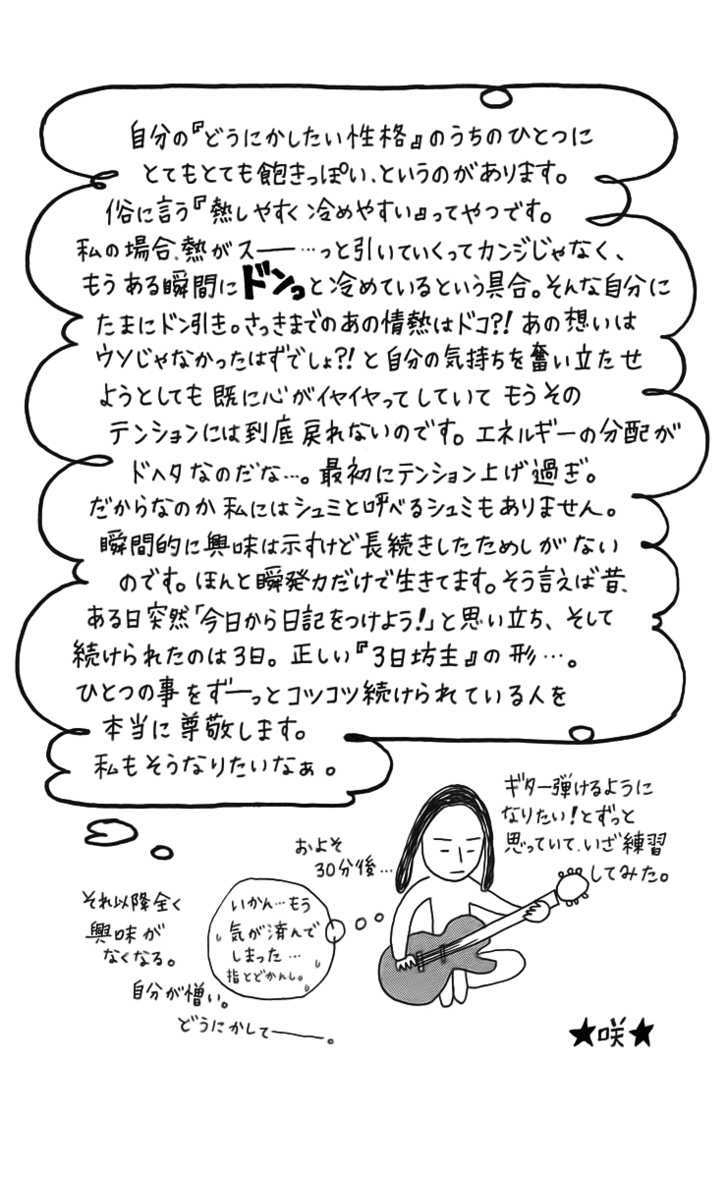 自分の『どうにかしたい性格』のうちのひとつに
とてもとても飽きっぽい、というのがあります。
俗に言う『熱しやすく冷めやすい』ってやつです。
私の場合、熱がスー――…っと引いていくってカンジじゃなく、
もうある瞬間にドンっと冷めているという具合。そんな自分に
たまにドン引き。さっきまでのあの情熱はドコ?! あの想いは
ウソじゃなかったはずでしょ?! と自分の気持ちを奮い立たせ
ようとしても既に心がイヤイヤってしていてもうその
テンションには到底戻れないのです。エネルギーの分配が
ドヘタなのだな…。最初にテンション上げ過ぎ。
だからなのか私にはシュミと呼べるシュミもありません。
瞬間的に興味は示すけど長続きしたためしがない
のです。ほんと瞬発力だけで生きてます。そう言えば昔、
ある日突然「今日から日記をつけよう!」と思い立ち、そして
続けられたのは3日。正しい『3日坊主』の形…。
ひとつの事をずーっとコツコツ続けられている人を
本当に尊敬します。
私もそうなりたいなぁ。
ギター弾けるように
なりたい!とずっと
思っていて、いざ練習
してみた。
およそ
30分後…
いかん…もう
気が済んで
しまった…
指とどかんし。
それ以降全く
興味が
なくなる。
自分が憎い。
どうにかして――。
★咲★